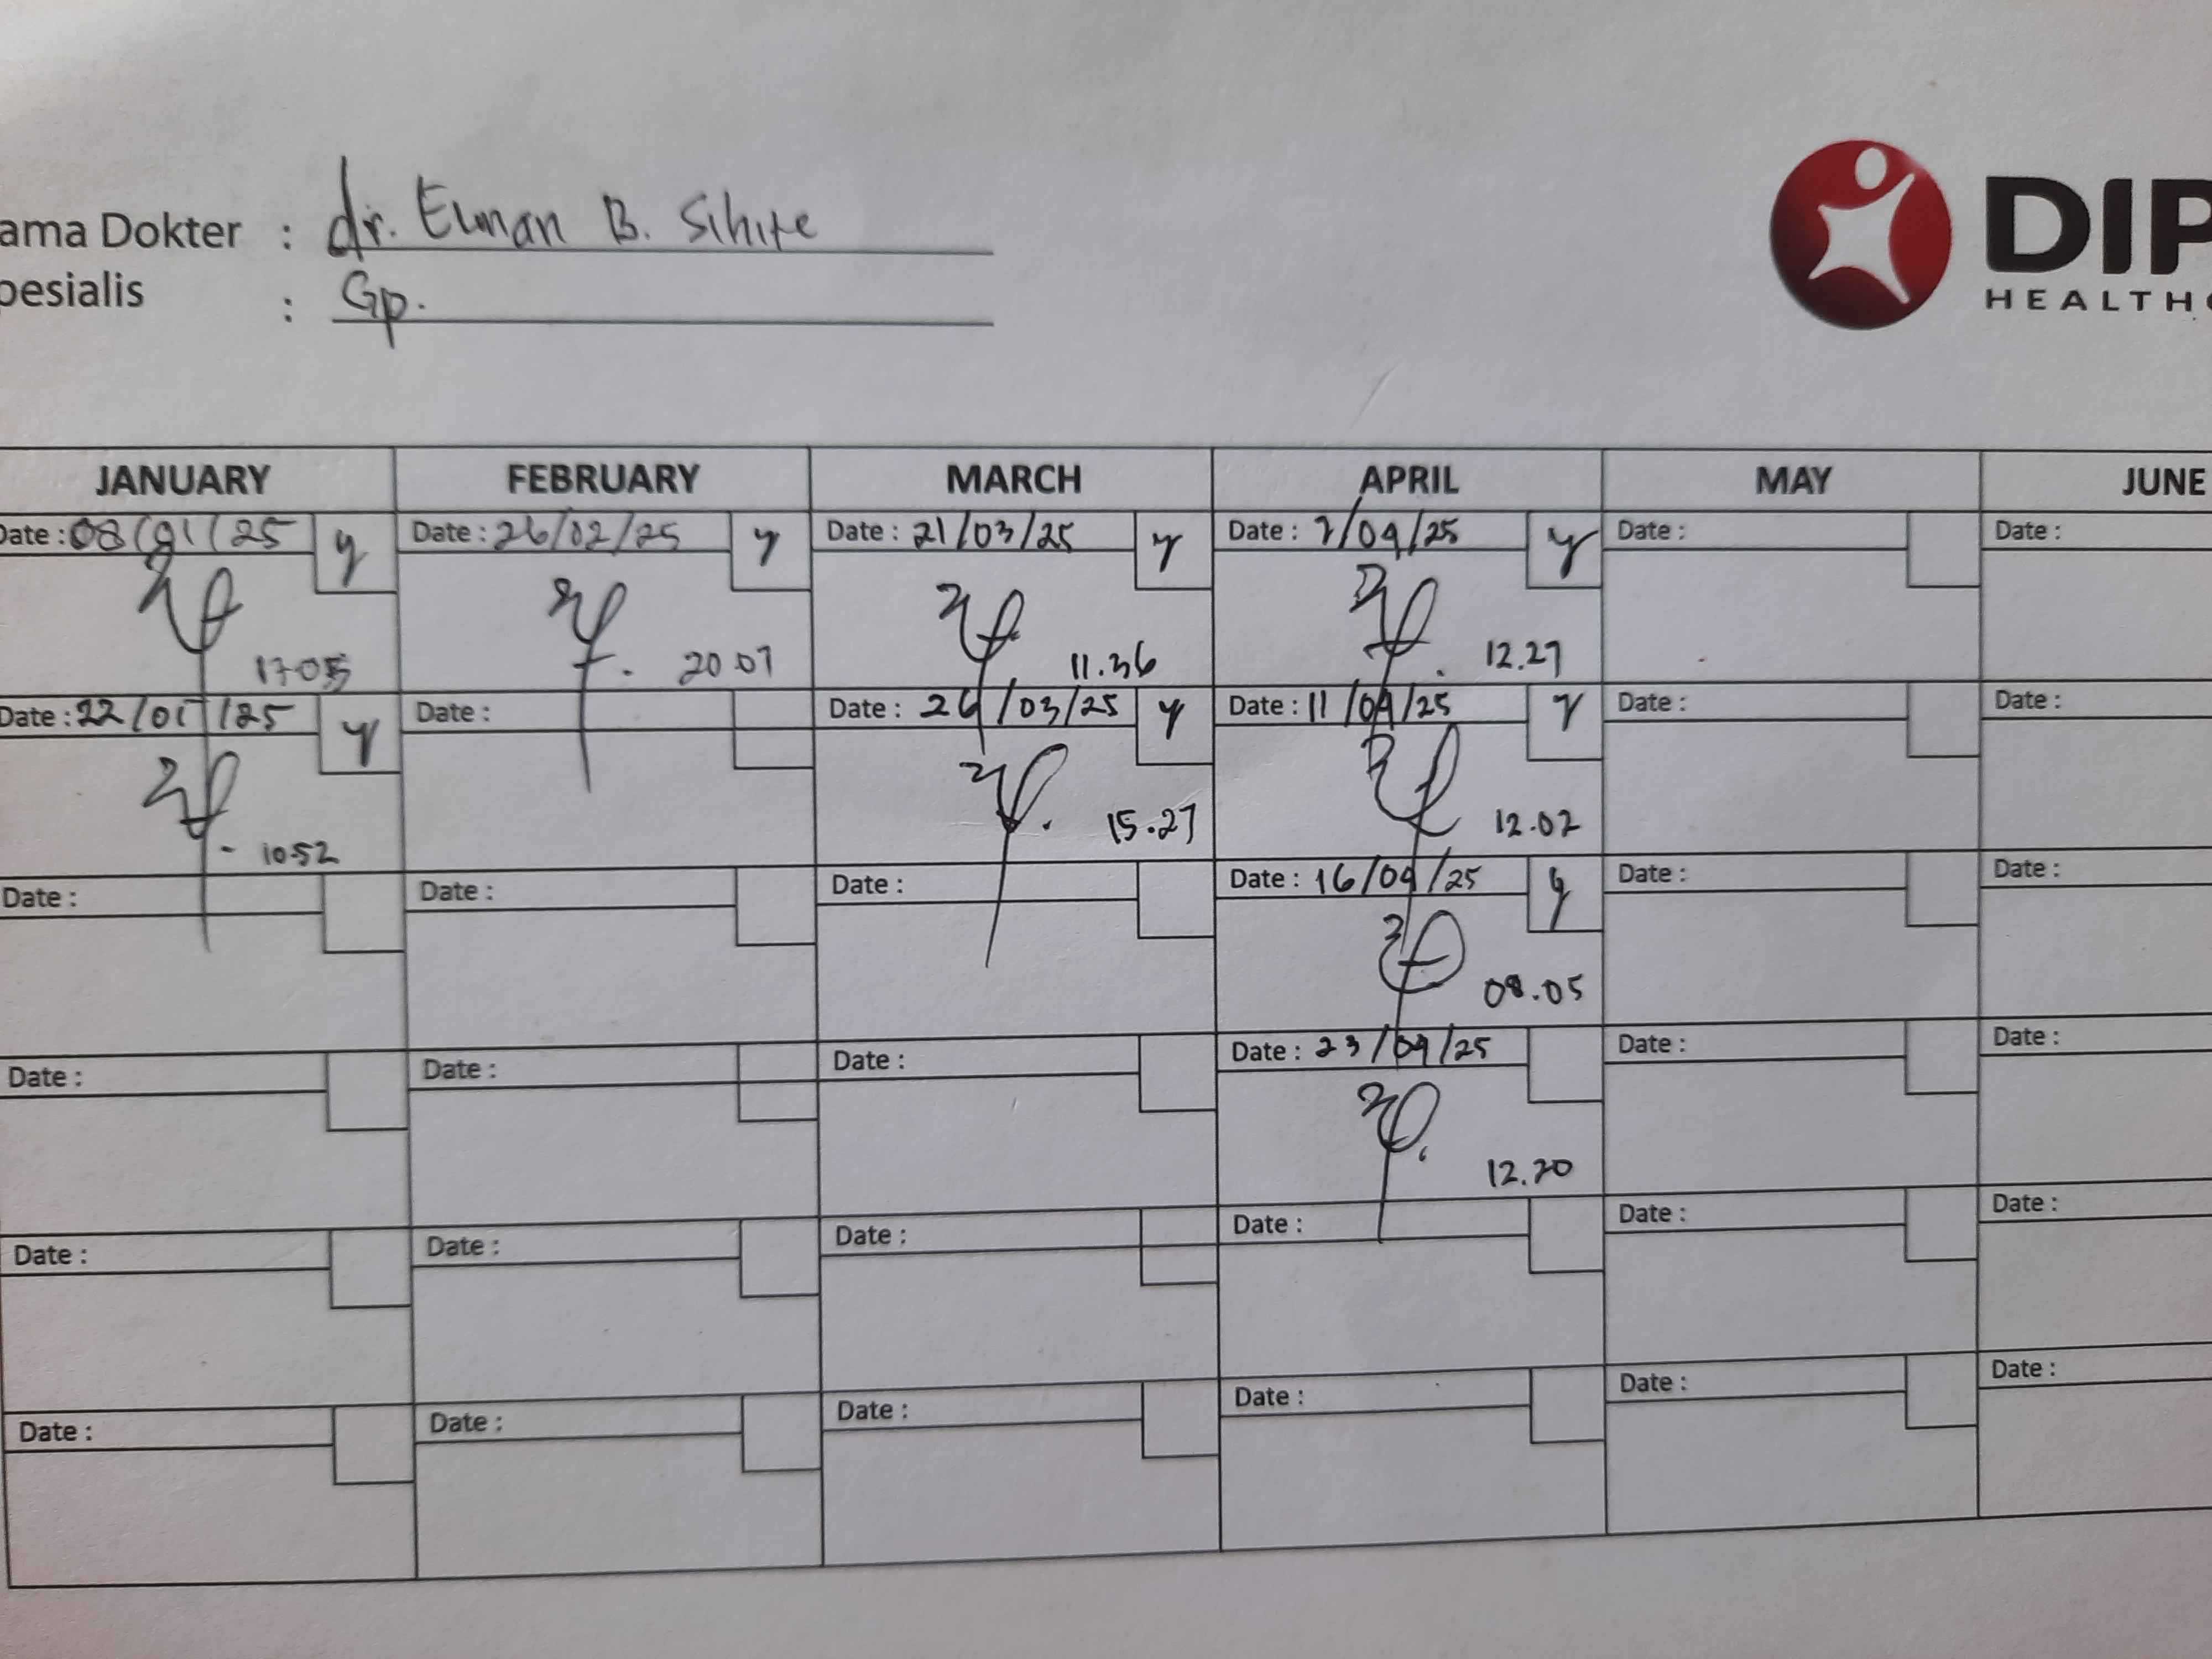 ama Dokter : dr. Elman B. Sihite
pesialis : Gp.
DIP
HEALTHC
JANUARY FEBRUARY MARCH APRIL MAY JUNE
Date : 08/01/25 y Date : 26/02/25 y Date : 21/03/25 y Date : 2/04/25 y Date : Date :
17.05 20.07 11.36 12.27
Date : 22/01/25 y Date : Date : 26/03/25 y Date : 11/04/25 y Date : Date :
10.52 15.27 12.02
Date : Date : Date : Date : 16/04/25 y Date : Date :
08.05
Date : Date : Date : Date : 23/04/25 Date : Date :
12.20
Date : Date : Date : Date : Date : Date :
Date : Date : Date : Date : Date : Date :